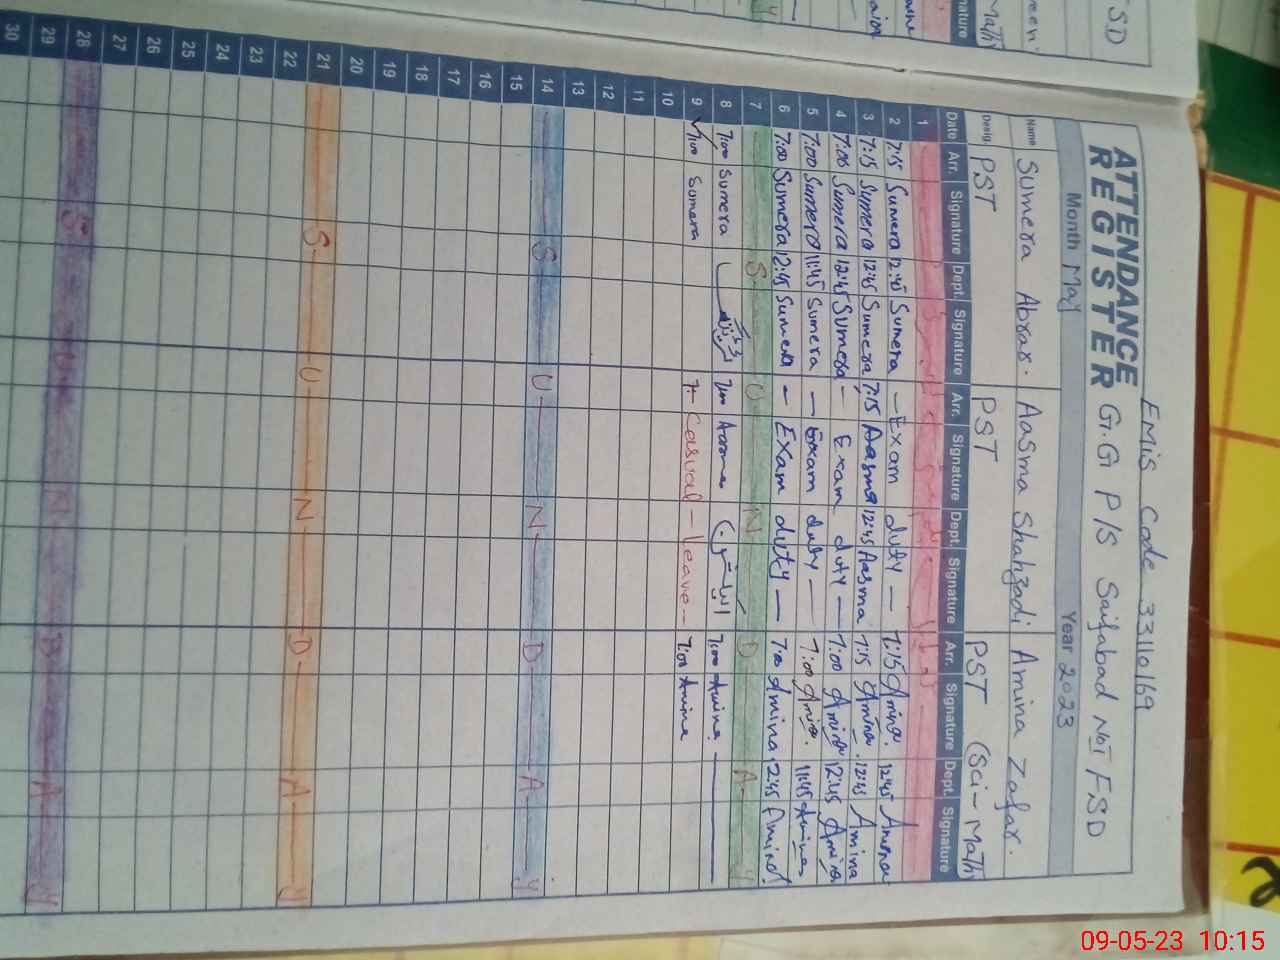 EMIS Code 33110169
ATTENDANCE
REGISTER G.G P/S Saifabad No I FSD
Month May Year 2023
Name Sumera Abrar. Aasma Shahzadi Amina Zafar.
Desig. PST PST PST (Sci-Math)
Date Arr. Signature Dept. Signature Arr. Signature Dept. Signature Arr. Signature Dept. Signature
1
2 7:15 Sumera 12:45 Sumera — Exam duty — 7:15 Amina. 12:45 Amina
3 7:15 Sumera 12:45 Sumera 7:15 Aasma 12:45 Aasma 7:15 Amina. 12:45 Amina
4 7:00 Sumera 12:45 Sumera — Exam duty — 7:00 Amina 12:45 Amina
5 7:00 Sumera 11:45 Sumera — Exam duty — 7:00 Amina. 11:45 Amina
6 7:00 Sumera 12:45 Sumera — Exam duty — 7:00 Amina 12:45 Amina
7 S U N D A Y
8 7:00 Sumera 7:00 Aasma 7:00 Amina.
9 7:00 Sumera Casual — leave — 7:00 Amina
10
11
12
13
14 S U N D A Y
15
16
17
18
19
20
21 S U N D A Y
22
23
24
25
26
27
28 S U N D A Y
29
30
FSD
Math
Signature
09-05-23 10:15